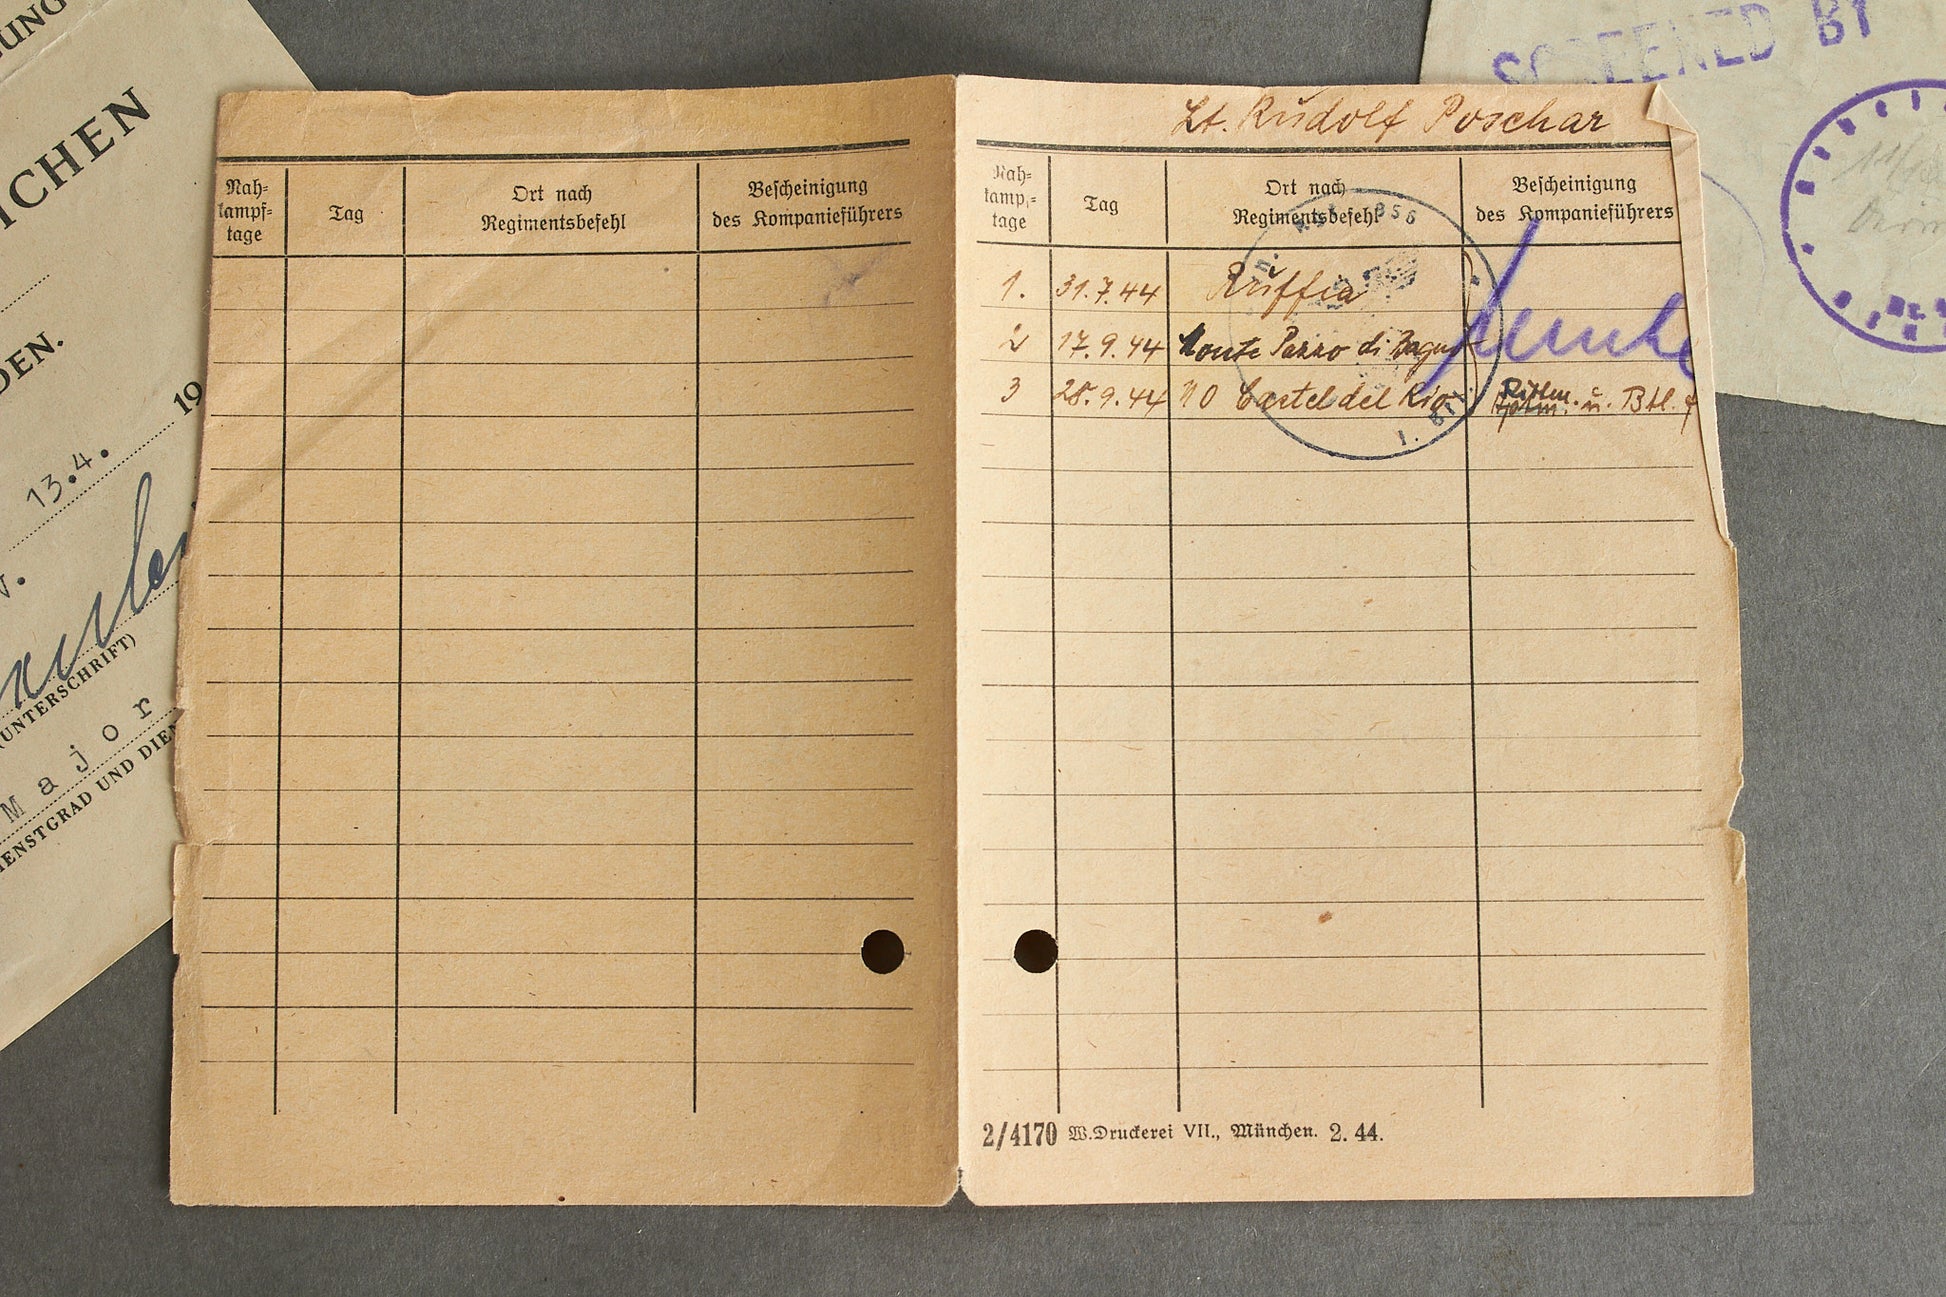 UNG
ICHEN
DEN.
19
13.4.
v.
(UNTERSCHRIFT)
Major
IENSTGRAD UND DIEN
Nah-
kampf-
tage
Tag
Ort nach
Regimentsbefehl
Bescheinigung
des Kompanieführers
Lt. Rudolf Poschar
Nah-
kampf-
tage
Tag
Ort nach
Regimentsbefehl
Bescheinigung
des Kompanieführers
1. 31.7.44 Ruffia
2 17.9.44 Monte Pazzo di Bagno
3 28.9.44 NO Castel del Rio
Rittm. u. Btl. f
I. Btl.
2/4170 W.Druckerei VII., München. 2. 44.
SCREENED BY